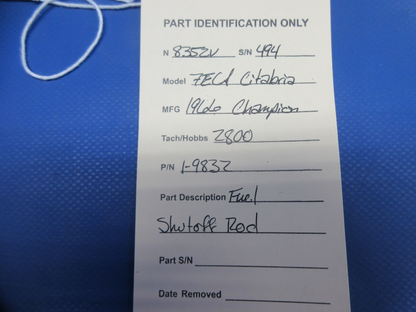 PART IDENTIFICATION ONLY
N 8352V S/N 494
Model 7ECA Citabria
MFG 1966 Champion
Tach/Hobbs 2800
P/N 1-9832
Part Description Fuel
Shutoff Rod
Part S/N
Date Removed